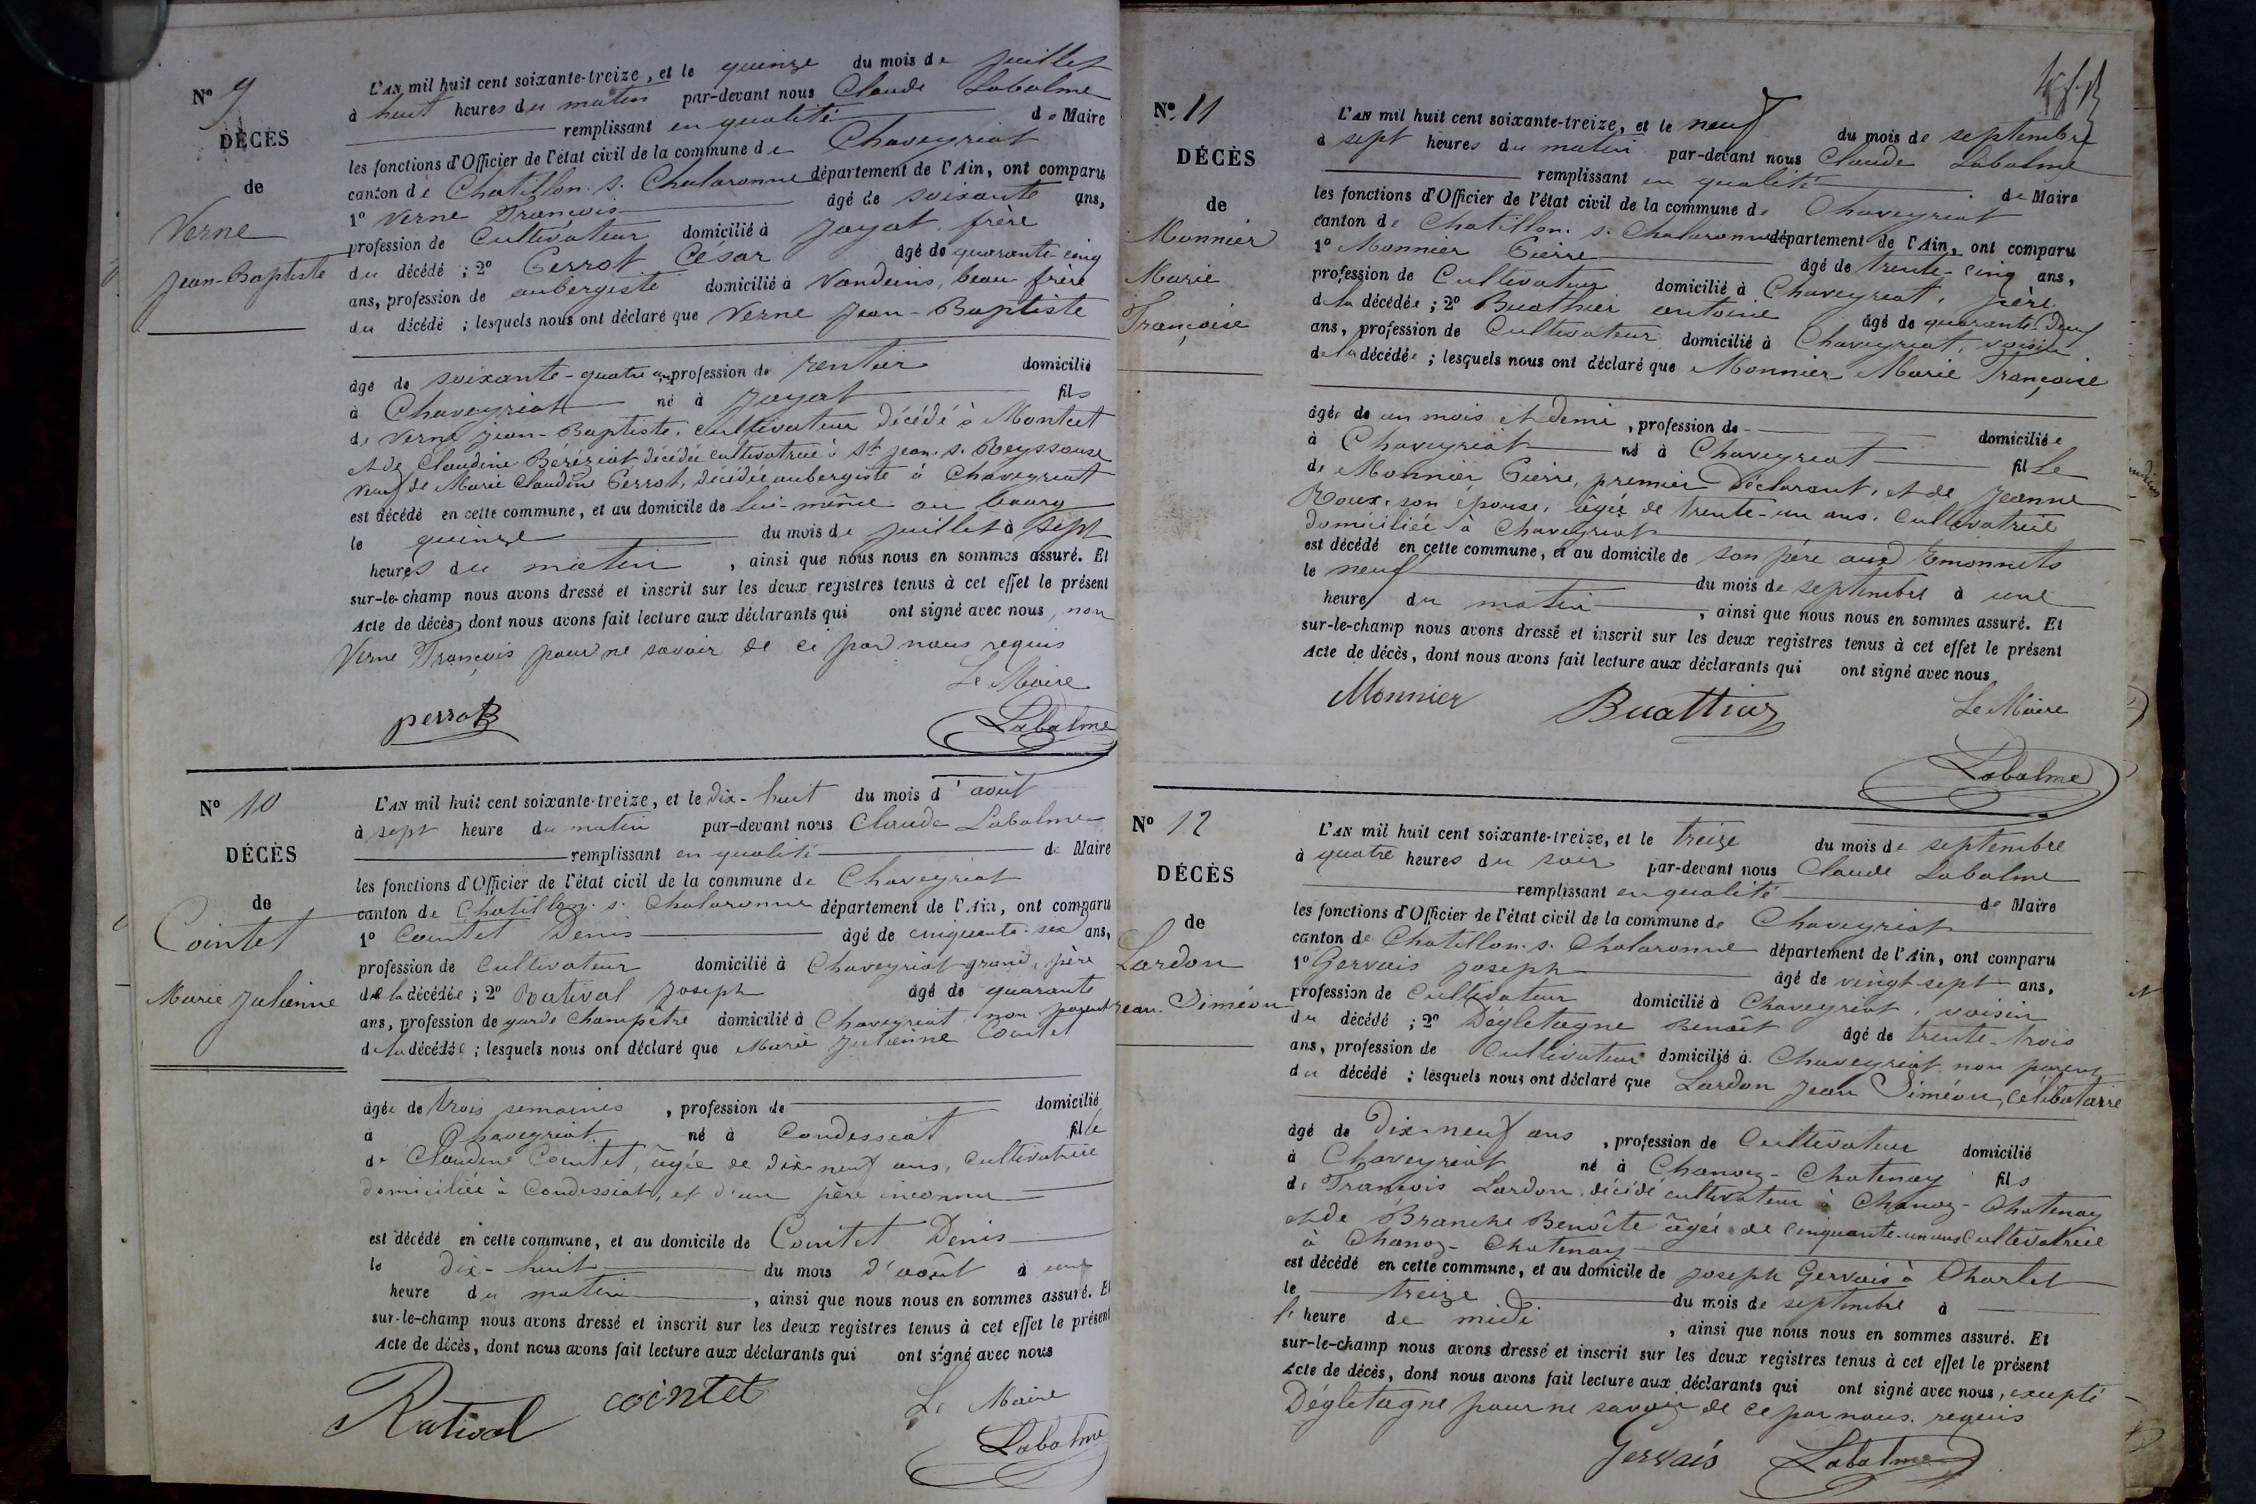 N° 9
DÉCÈS
de
Verne
Jean-Baptiste
L'AN mil huit cent soixante-treize, et le quinze du mois de juillet
à huit heures du matin par-devant nous Claude Labalme
remplissant en qualité de Maire
les fonctions d'Officier de l'état civil de la commune de Chaveyriat
canton de Chatillon. s. Chalaronne département de l'Ain, ont comparu
1° Verne François âgé de soixante ans,
profession de Cultivateur domicilié à Jayat, frère
du décédé ; 2° Perrot César âgé de quarante-cinq
ans, profession de aubergiste domicilié à Vandeins, beau frère
du décédé ; lesquels nous ont déclaré que Verne Jean-Baptiste
âgé de soixante-quatre ans profession de rentier domicilié
à Chaveyriat né à Jayat fils
de Verne Jean-Baptiste, cultivateur décédé à Montcet
et de Claudine Béréziat décédée cultivatrice à St Jean. s. Reyssouze
veuf de Marie Claudine Perrot, décédée aubergiste à Chaveyriat
est décédé en cette commune, et au domicile de lui-même au bourg
le quinze du mois de juillet à sept
heures du matin, ainsi que nous nous en sommes assuré. Et
sur-le-champ nous avons dressé et inscrit sur les deux registres tenus à cet effet le présent
Acte de décès, dont nous avons fait lecture aux déclarants qui ont signé avec nous, non
Verne François pour ne savoir de ce par nous requis
Le Maire
perrot
Labalme
N° 10
DÉCÈS
de
Cointet
Marie Julienne
L'AN mil huit cent soixante-treize, et le dix-huit du mois d'août
à sept heure du matin par-devant nous Claude Labalme
remplissant en qualité de Maire
les fonctions d'Officier de l'état civil de la commune de Chaveyriat
canton de Chatillon. s. Chalaronne département de l'Ain, ont comparu
1° Cointet Denis âgé de cinquante-six ans,
profession de Cultivateur domicilié à Chaveyriat grand père
de la décédée ; 2° Ratival Joseph âgé de quarante
ans, profession de garde champêtre domicilié à Chaveyriat non parent
de la décédée ; lesquels nous ont déclaré que Marie Julienne Cointet
âgée de trois semaines, profession de domicilié
à Chaveyriat né à Condessiat fille
de Claudine Cointet, âgée de dix-neuf ans, cultivatrice
domiciliée à Condessiat, et d'un père inconnu
est décédé en cette commune, et au domicile de Cointet Denis
le dix-huit du mois d'août à une
heure du matin, ainsi que nous nous en sommes assuré. Et
sur-le-champ nous avons dressé et inscrit sur les deux registres tenus à cet effet le présent
Acte de décès, dont nous avons fait lecture aux déclarants qui ont signé avec nous
Le Maire
Ratival cointet
Labalme
N° 11
DÉCÈS
de
Monnier
Marie
Françoise
L'AN mil huit cent soixante-treize, et le neuf du mois de septembre
à sept heures du matin par-devant nous Claude Labalme
remplissant en qualité de Maire
les fonctions d'Officier de l'état civil de la commune de Chaveyriat
canton de Chatillon. s. Chalaronne département de l'Ain, ont comparu
1° Monnier Pierre âgé de trente-cinq ans,
profession de Cultivateur domicilié à Chaveyriat, père
de la décédée ; 2° Buathier antoine âgé de quarante-deux
ans, profession de Cultivateur domicilié à Chaveyriat, voisin
de la décédée ; lesquels nous ont déclaré que Monnier Marie Françoise
âgée de un mois et demi, profession de domiciliée
à Chaveyriat né à Chaveyriat fille
de Monnier Pierre, premier déclarant, et de Jeanne
Roux, son épouse, âgée de trente-un ans, cultivatrice
domiciliée à Chaveyriat
est décédé en cette commune, et au domicile de son père aux Emonnets
le neuf du mois de septembre à une
heure du matin, ainsi que nous nous en sommes assuré. Et
sur-le-champ nous avons dressé et inscrit sur les deux registres tenus à cet effet le présent
Acte de décès, dont nous avons fait lecture aux déclarants qui ont signé avec nous
Monnier Buathier Le Maire
Labalme
N° 12
DÉCÈS
de
Lardon
Jean-Siméon
L'AN mil huit cent soixante-treize, et le treize du mois de septembre
à quatre heures du soir par-devant nous Claude Labalme
remplissant en qualité de Maire
les fonctions d'Officier de l'état civil de la commune de Chaveyriat
canton de Chatillon. s. Chalaronne département de l'Ain, ont comparu
1° Gervais Joseph âgé de vingt-sept ans,
profession de Cultivateur domicilié à Chaveyriat, voisin
du décédé ; 2° Dégletagne Benoît âgé de trente-trois
ans, profession de Cultivateur domicilié à Chaveyriat non parent
du décédé ; lesquels nous ont déclaré que Lardon Jean Siméon, célibataire
âgé de dix-neuf ans, profession de Cultivateur domicilié
à Chaveyriat né à Chanoz-Chatenay fils
de François Lardon décédé cultivateur à Chanoz-Chatenay
et de Branche Benoîte âgée de cinquante-un ans Cultivatrice
à Chanoz-Chatenay
est décédé en cette commune, et au domicile de Joseph Gervais à Charlet
le treize du mois de septembre à
l'heure de midi, ainsi que nous nous en sommes assuré. Et
sur-le-champ nous avons dressé et inscrit sur les deux registres tenus à cet effet le présent
Acte de décès, dont nous avons fait lecture aux déclarants qui ont signé avec nous, excepté
Dégletagne pour ne savoir de ce par nous requis
Gervais Labalme